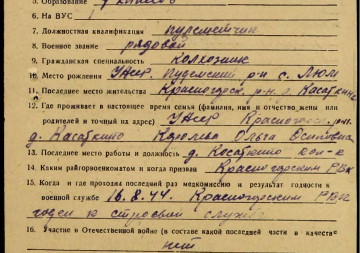 5. Образование 4 класса
6. На ВУС
7. Должностная квалификация пулеметчик
8. Военное звание рядовой
9. Гражданская специальность колхозник
10. Место рождения УАССР Пудемский р-н с. Люм
11. Последнее место жительства Красногорск. р-н д. Касаткино
12. Где проживает в настоящее время семья (фамилия, имя и отчество жены или
родителей и точный адрес) УАССР Красногорск. р-н
д. Касаткино Королева Ольга Осиповна
13. Последнее место работы и должность д. Касаткино кол-к
14. Каким райгорвоенкоматом и когда призван Красногорским РВК
15. Когда и где проходил последний раз медкомиссию и результат годности к
военной службе 16.8.44. Красногорским РВК
годен к строевой службе
16. Участие в Отечественной войне (в составе какой последней части и качестве
нет